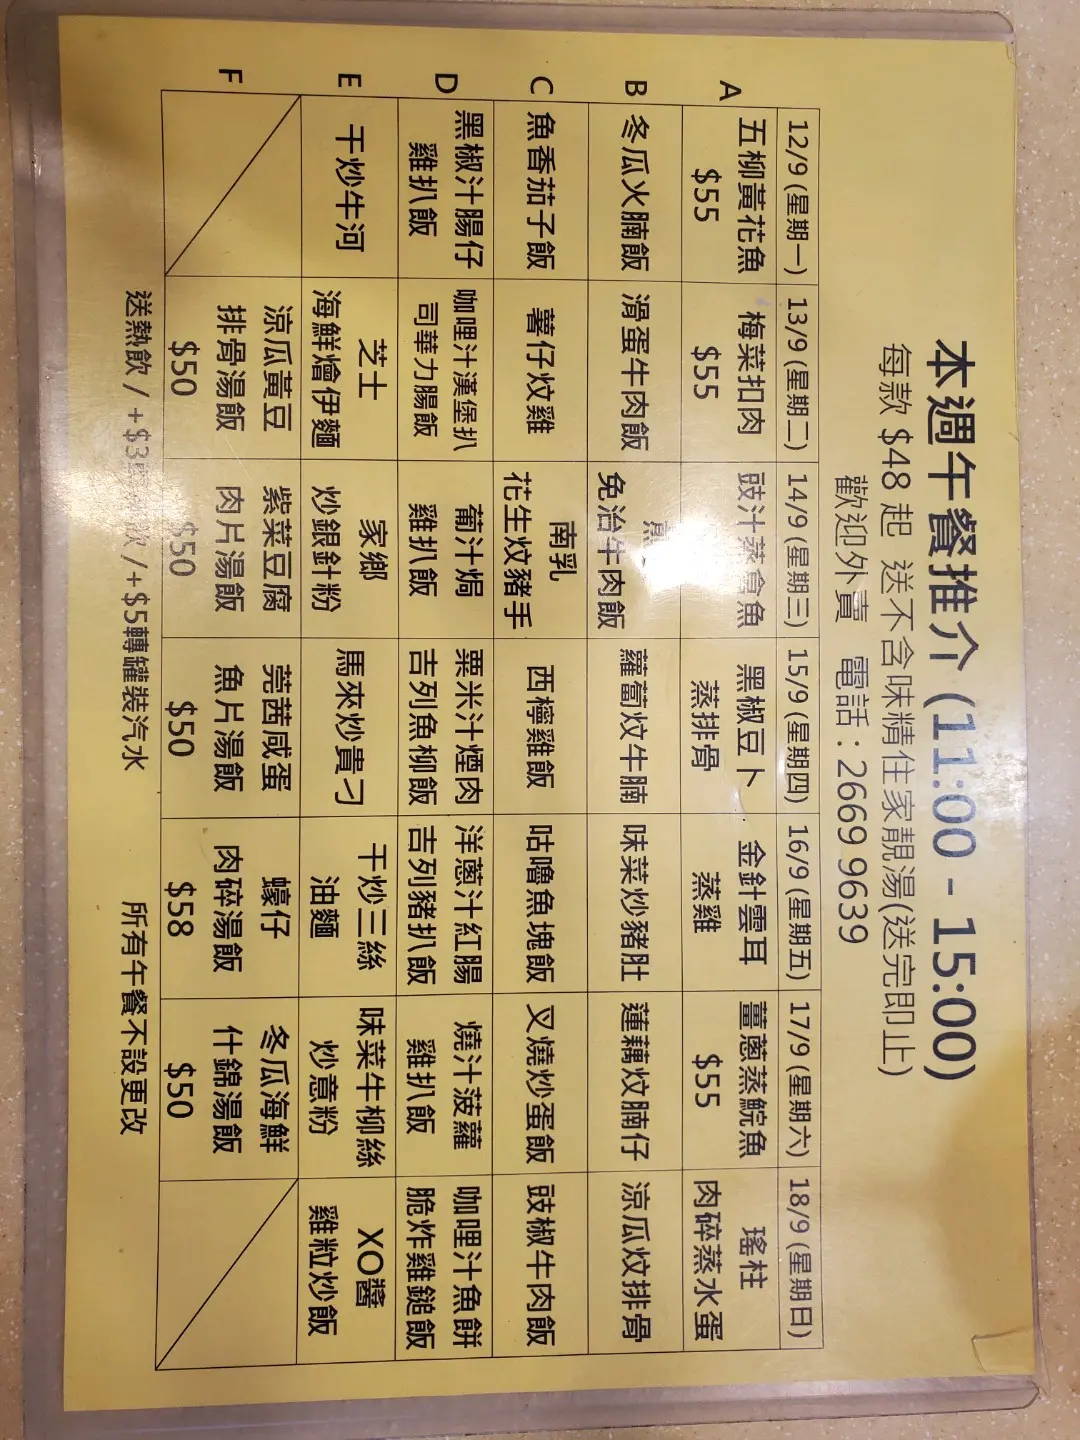 本週午餐推介 (11:00 - 15:00)
每款 $48 起 送不含味精住家靚湯(送完即止)
歡迎外賣 電話：2669 9639
12/9 (星期一) 13/9 (星期二) 14/9 (星期三) 15/9 (星期四) 16/9 (星期五) 17/9 (星期六) 18/9 (星期日)
A 五柳黃花魚 梅菜扣肉 豉汁蒸倉魚 黑椒豆卜 金針雲耳 薑蔥蒸鯇魚 瑤柱
$55 $55 蒸排骨 蒸雞 $55 肉碎蒸水蛋
B 冬瓜火腩飯 滑蛋牛肉飯 免治牛肉飯 蘿蔔炆牛腩 味菜炒豬肚 蓮藕炆腩仔 涼瓜炆排骨
C 魚香茄子飯 薯仔炆雞 南乳 西檸雞飯 咕嚕魚塊飯 叉燒炒蛋飯 豉椒牛肉飯
花生炆豬手
D 黑椒汁腸仔 咖哩汁漢堡扒 葡汁焗 粟米汁煙肉 洋蔥汁紅腸 燒汁菠蘿 咖哩汁魚餅
雞扒飯 司華力腸飯 雞扒飯 吉列魚柳飯 吉列豬扒飯 雞扒飯 脆炸雞鎚飯
E 干炒牛河 芝士 家鄉 馬來炒貴刁 干炒三絲 味菜牛柳絲 XO醬
海鮮燴伊麵 炒銀針粉 油麵 炒意粉 雞粒炒飯
F 涼瓜黃豆 紫菜豆腐 莞茜咸蛋 蠔仔 冬瓜海鮮
排骨湯飯 肉片湯飯 魚片湯飯 肉碎湯飯 什錦湯飯
$50 $50 $50 $58 $50
送熱飲 / +$3 飲 /+$5轉罐裝汽水 所有午餐不設更改